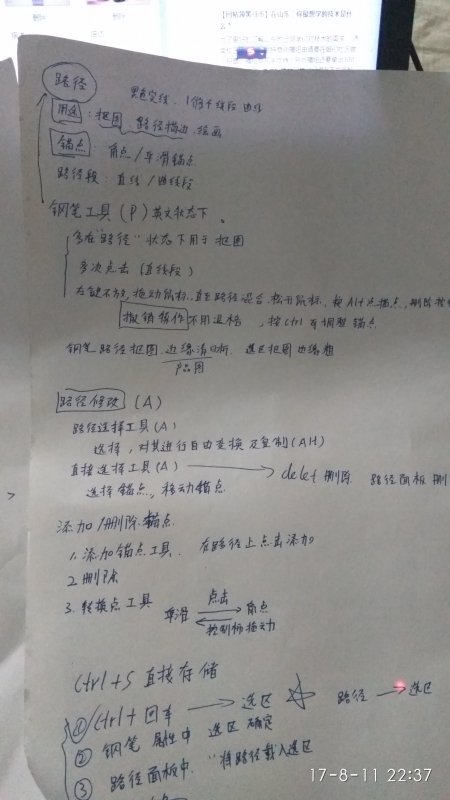 路径
黑色实线、1像素线段 曲线
用途：抠图 路径描边、绘画
锚点：角点/平滑锚点
路径段：直线/曲线段
钢笔工具（P）英文状态下、
多在"路径"状态下用于抠图
多次点击（直线段）
左键不放，拖动鼠标，直至路径混合，松开鼠标，按Alt点锚点，删除
撤销操作不用退格，按Ctrl可调整锚点
钢笔路径抠图，边缘清晰，选区抠图边缘粗
产品图
路径修改（A）
路径选择工具（A）
选择，对其进行自由变换及复制（AH）
直接选择工具（A）→ delet 删除 路径面板 删
选择锚点，移动锚点
添加/删除锚点
1.添加锚点工具、在路径上点击添加
2.删除
3.转换点工具 平滑 点击 角点
控制柄拖动
Ctrl+S 直接存储
①Ctrl+回车 → 选区 ☆ 路径 → 选区
② 钢笔 属性中 选区 确定
③ 路径面板中、"将路径载入选区
17-8-11 22:37